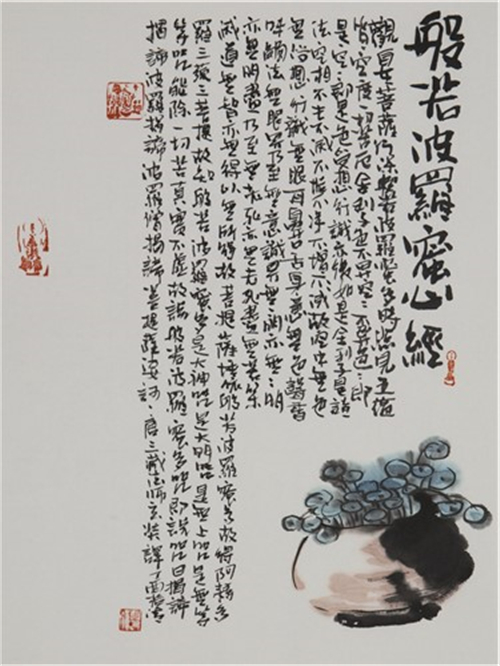 般若波羅蜜心經
觀自在菩薩行深般若波羅蜜多時照見五蘊
皆空度一切苦厄舍利子色不異空〻不異色〻即
是空〻即是色受想行識亦復如是舍利子是諸
法空相不生不滅不垢不淨不增不減故空中無色
無受想行識無眼耳鼻舌身意無色聲香
味觸法無眼界乃至無意識界無〻明亦無〻明
亦無明盡乃至無老死亦無老死盡無苦集
滅道無智亦無得以無所得故菩提薩埵依般若波羅蜜多故得阿耨多
羅三藐三菩提故知般若波羅蜜多是大神咒是大明咒是無上咒是無等
等咒能除一切苦真實不虛故說般若波羅蜜多咒即說咒曰揭諦
揭諦波羅揭諦波羅僧揭諦菩提薩婆訶唐三藏法師玄奘譯丁酉